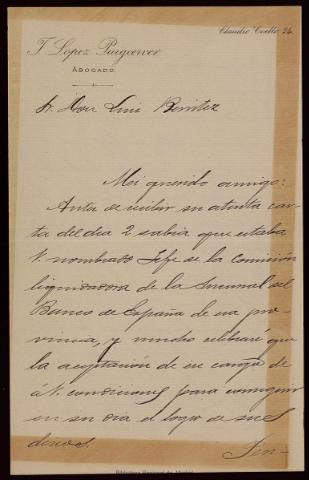 Claudio Coello, 24.
T. Lopez Puigcerver
ABOGADO
Sr. Don Luis Benitez
Mi querido amigo:
Antes de recibir su atenta car-
ta del dia 2 sabia que estaba
V. nombrado Jefe de la Comisión
liquidadora de la Sucursal del
Banco de España de esa pro-
vincia, y mucho celebraré que
la aceptación de ese cargo de
á V. condiciones para conseguir
en su dia el logro de sus
deseos.
Sen-
Biblioteca Nacional de Madrid